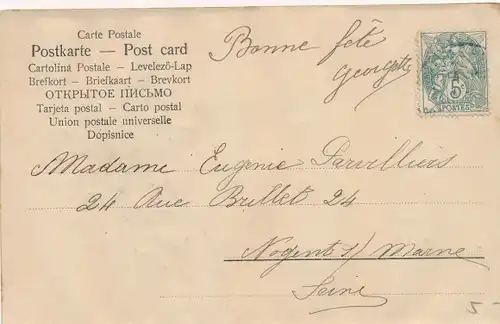 Carte Postale
Postkarte — Post card
Cartolina Postale – Levelező-Lap
Brefkort – Briefkaart – Brevkort
ОТКРЫТОЕ ПИСЬМО
Tarjeta postal – Carto postal
Union postale universelle
Dopisnice
Bonne fête
Georgette
5
POSTES
Madame Eugenie Parvilliers
24 Rue Brillet 24
Nogent s/ Marne
Seine
5